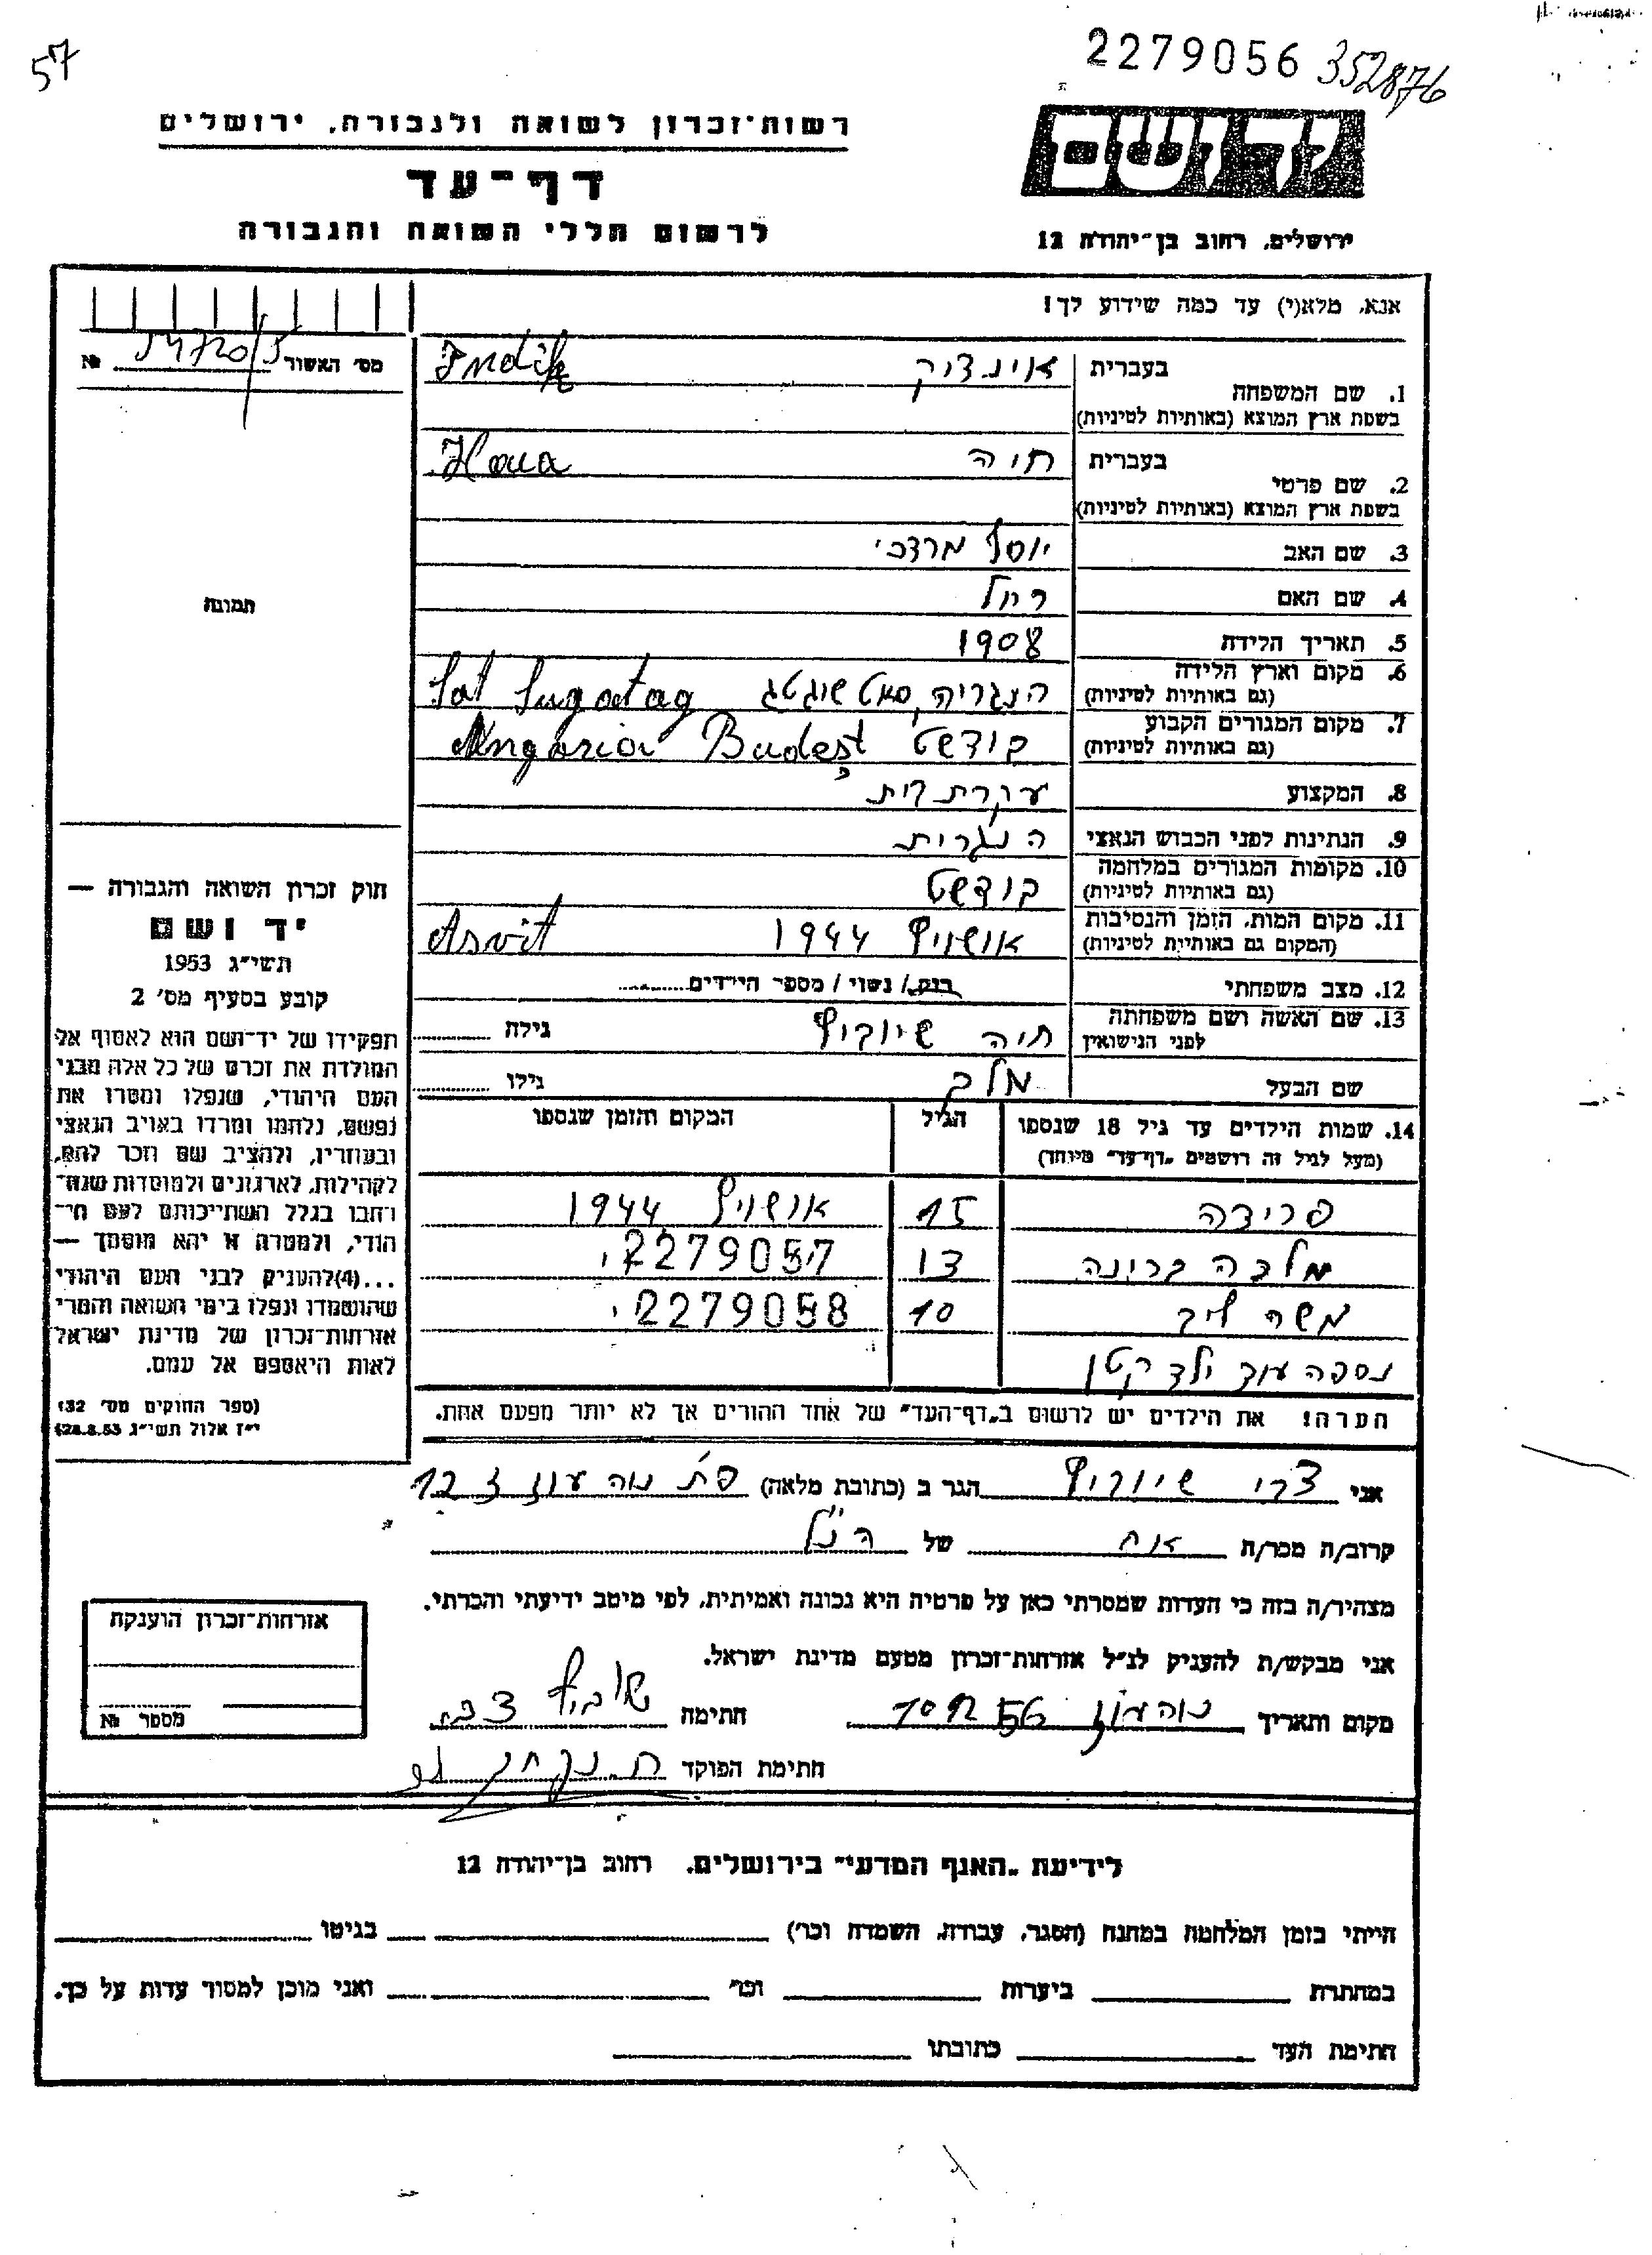 57
2279056 352876
רשות־זכרון לשואה ולגבורה, ירושלים
דף־עד
לרשום חללי השואה והגבורה
יד ושם
ירושלים, רחוב בן־יהודה 12
אנא, מלא(י) עד כמה שידוע לך!
מס׳ האשור №
בעברית אינדיק Indik
1. שם המשפחה
בשפת ארץ המוצא (באותיות לטיניות)
בעברית חיה Haia
2. שם פרטי
בשפת ארץ המוצא (באותיות לטיניות)
3. שם האב יוסף מרדכי
4. שם האם רחל
תמונה
5. תאריך הלידה 1908
6. מקום וארץ הלידה הנגריה, סאט שוגטג Sat Sugatag
(גם באותיות לטיניות)
7. מקום המגורים הקבוע בודשט Budest Ungaria
(גם באותיות לטיניות)
8. המקצוע עקרת בית
9. הנתינות לפני הכבוש הנאצי הנגרית
10. מקומות המגורים במלחמה בודשט
(גם באותיות לטיניות)
11. מקום המות, הזמן והנסיבות אושויץ 1944 Asvit
(המקום גם באותיות לטיניות)
12. מצב משפחתי רווק / נשוי / מספר הילדים
13. שם האשה ושם משפחתה חיה שיוביץ גילה
לפני הנישואין
שם הבעל גילו
14. שמות הילדים עד גיל 18 שנספו הגיל המקום והזמן שנספו
(מעל לגיל זה רושמים „דף־עד״ מיוחד)
פרידה 15 אושויץ 1944
מלכה ברינה 13 2279057
משה ליב 10 2279058
נספה עוד ילד קטן
הערה! את הילדים יש לרשום ב„דף־העד״ של אחד ההורים אך לא יותר מפעם אחת.
חוק זכרון השואה והגבורה —
יד ושם
תשי״ג 1953
קובע בסעיף מס׳ 2
תפקידו של יד־ושם הוא לאסוף אל
המולדת את זכרם של כל אלה מבני
העם היהודי, שנפלו ומסרו את
נפשם, נלחמו ומרדו באויב הנאצי
ובעוזריו, ולהציב שם וזכר להם,
לקהילות, לארגונים ולמוסדות שנח־
רחבו בגלל השתייכותם לעם הי־
הודי, ולמטרה זו יהא מוסמך —
...(4)להעניק לבני העם היהודי
שהושמדו ונפלו בימי השואה והמרי
אזרחות־זכרון של מדינת ישראל
לאות היאספם אל עמם.
(ספר החוקים מס׳ 132
י״ז אלול תשי״ג 28.8.53)
אני צבי שיוביץ הגר ב (כתובת מלאה) נוה עוז 123
קרוב/ה מכר/ה אח של הנ״ל
מצהיר/ה בזה כי העדות שמסרתי כאן על פרטיה היא נכונה ואמיתית, לפי מיטב ידיעתי והכרתי.
אני מבקש/ת להעניק לנ״ל אזרחות־זכרון מטעם מדינת ישראל.
מקום ותאריך נוה עוז חתימה שיוביץ צבי
חתימת הפוקד
אזרחות־זכרון הוענקה
מספר №
לידיעת „האגף המדעי״ בירושלים, רחוב בן־יהודה 12
הייתי בזמן המלחמה במחנה (הסגר, עבודה, השמדה וכו׳) בגיטו
במחתרת ביערות וכו׳ ואני מוכן למסור עדות על כך.
חתימת העד כתובתו